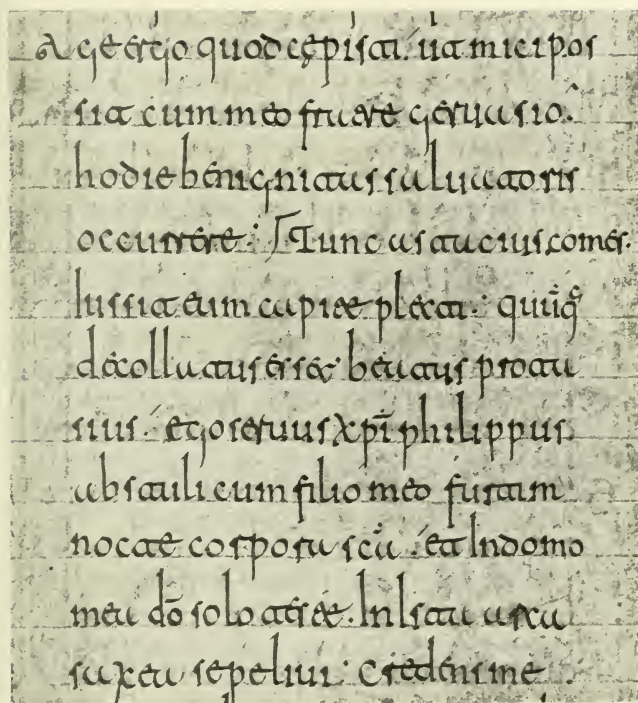 Age ergo quod cępisti. ut mici pos
sit cum meo fruere geruasio.
hodie benignitas saluatoris
occurrere. Tunc astacius comes.
iussit eum capite plecti. quūq;
decollatus esset beatus prota
sius. ego seruus xp̄i philippus
abstuli cum filio meo furtim
nocte corpora sc̄a. et In domo
mea dō solo teste. In Ista arca
saxea sepeliui. Credens me